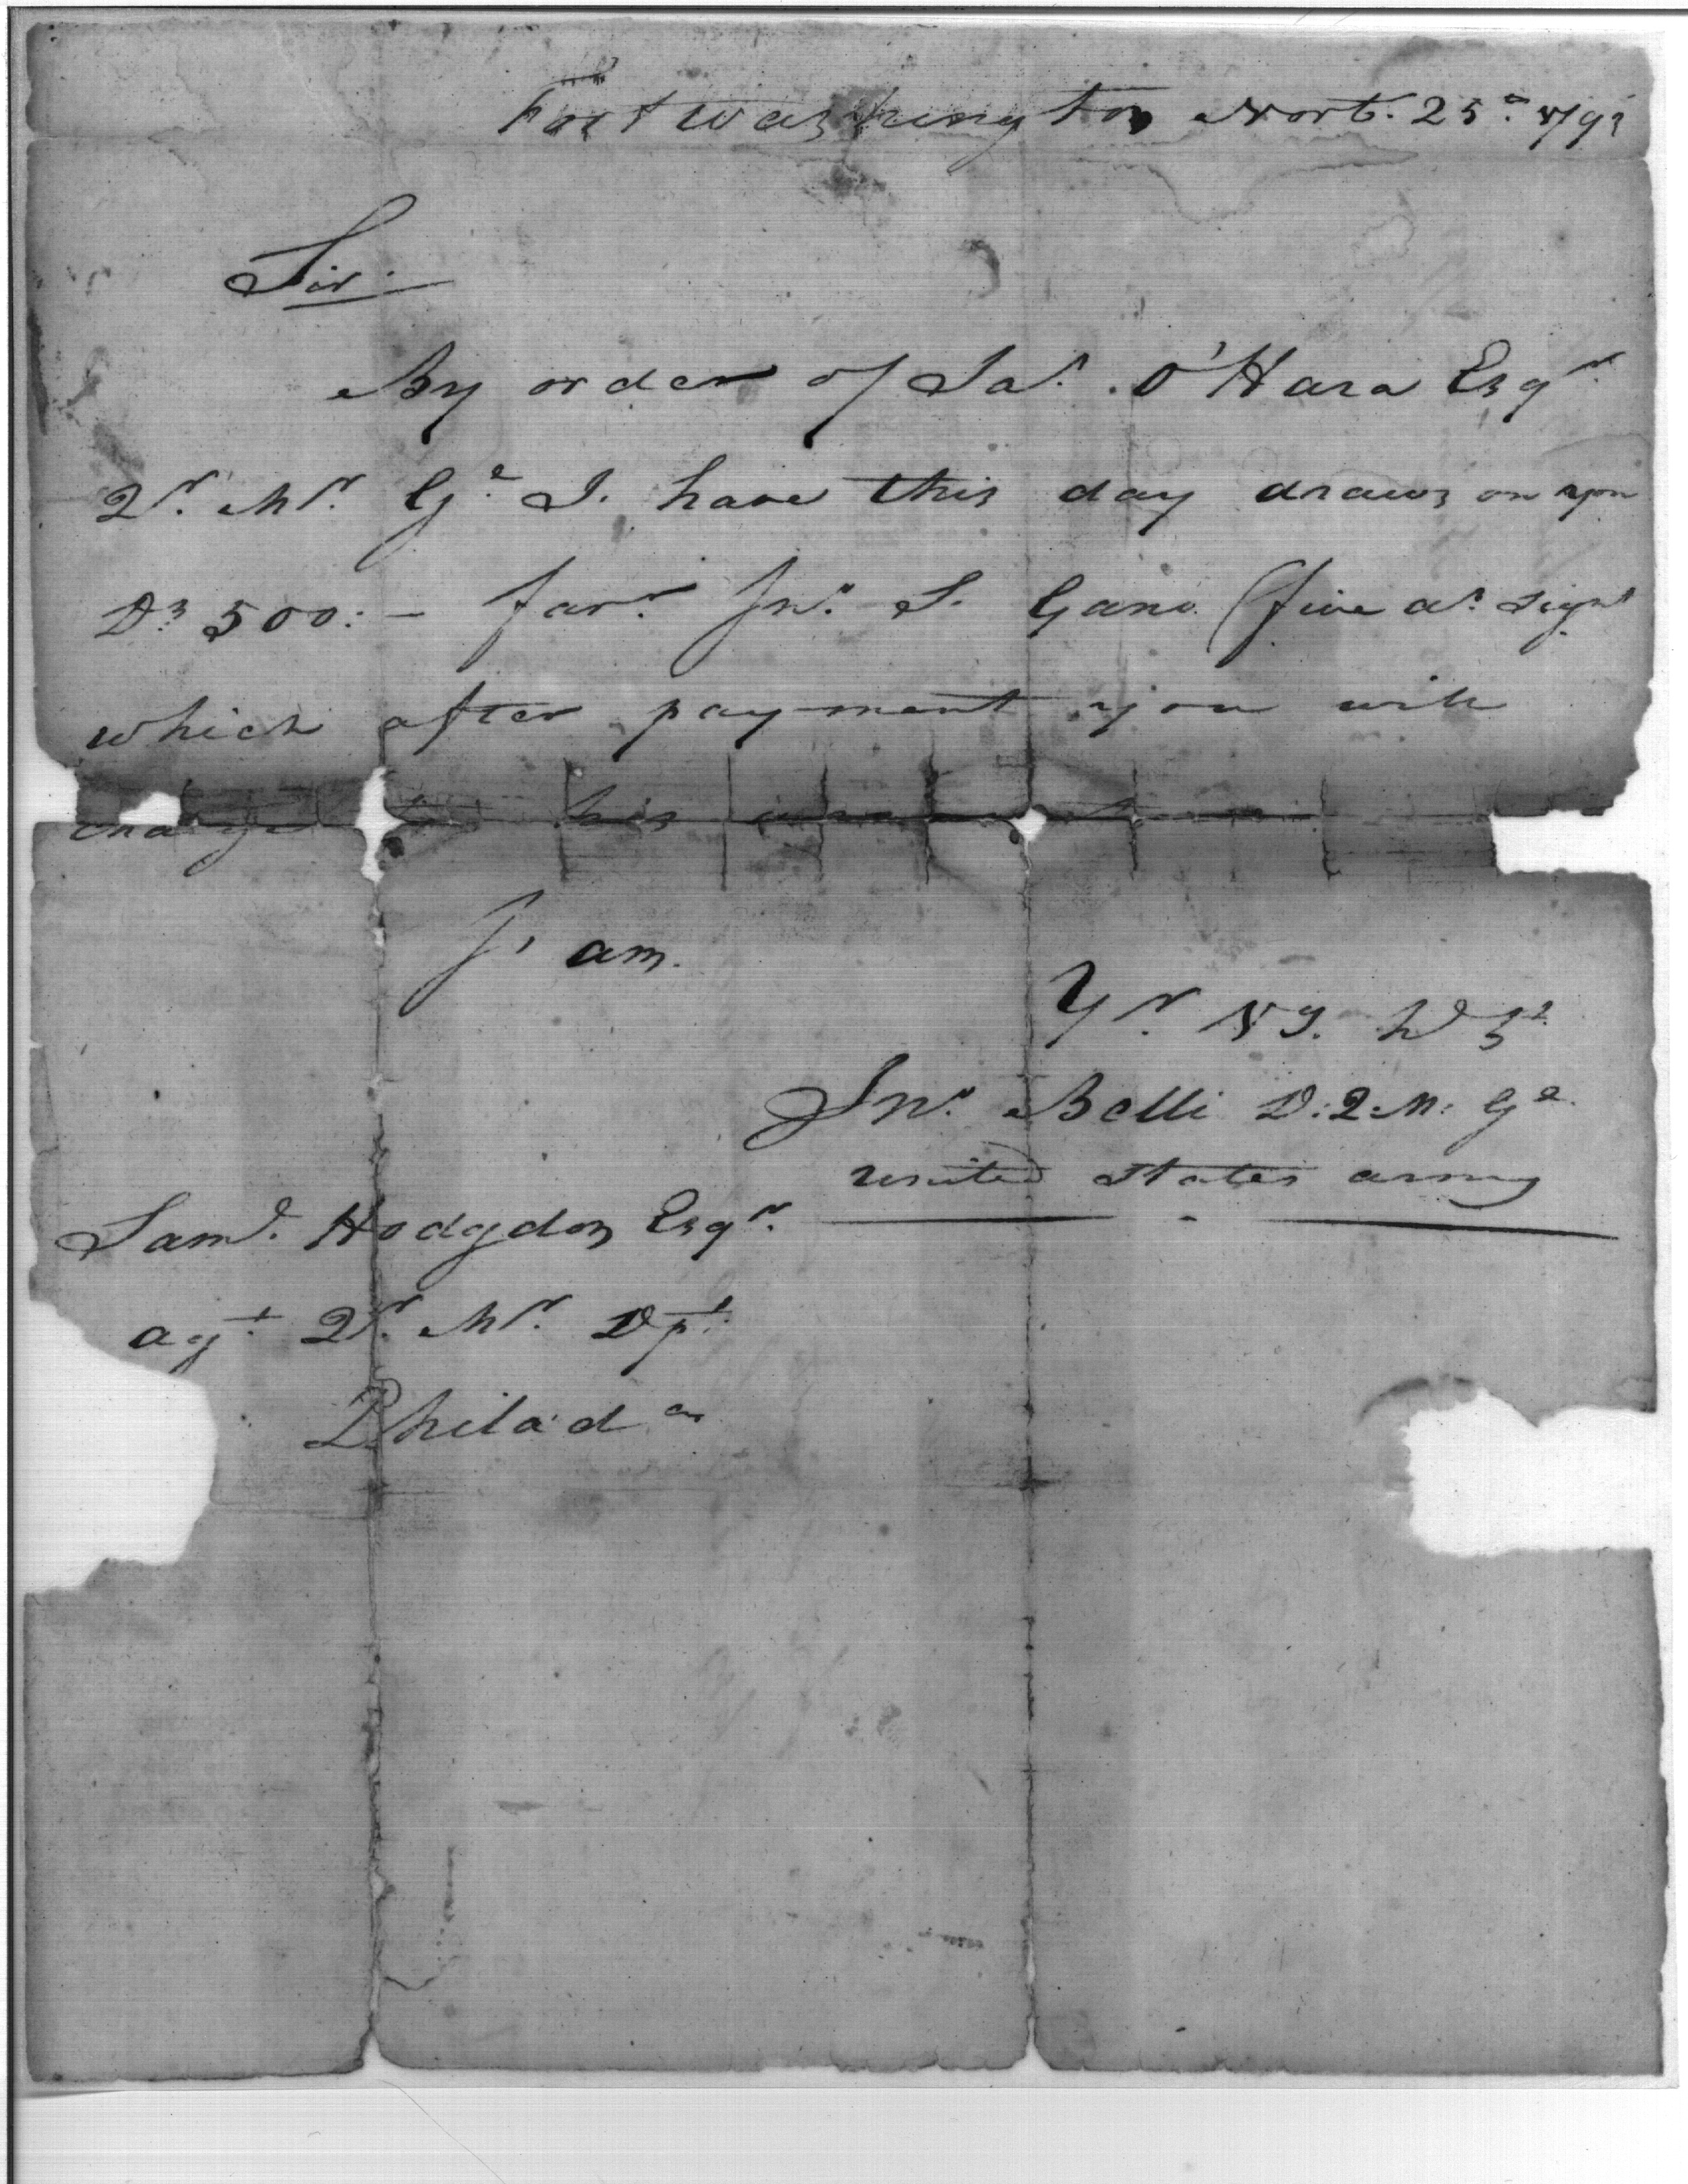 Fort Washington Novr. 25th 179
Sir.
By order of Jas. O'Hara Esqr
Qr. Mr. Gl I have this day drawn on you
Ds 500:- favr. Jno. S. Gano (five ds. sight
which after payment you will
charge to his
I am.
Yr
Jno. Belli D:Q:M: Gl.
United States army
Saml. Hodgdon Esqr.
agt. Qr. Mr. Dpt.
Philada